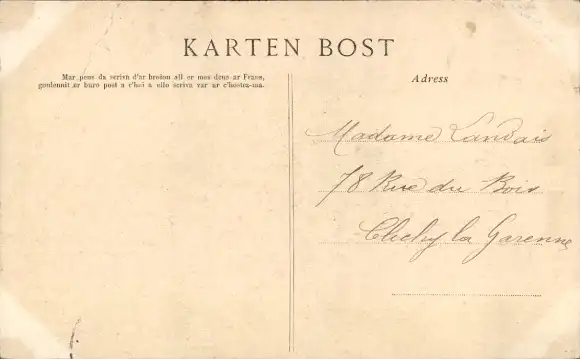 KARTEN BOST
Mar peus da scriva d'ar broiou all er mes deus ar Frans,
goulennit er buro post a c'hei a ello scriva var ar c'hostez-ma.
Adress
Madame Landais
78 Rue du Bois
Clichy la Garenne